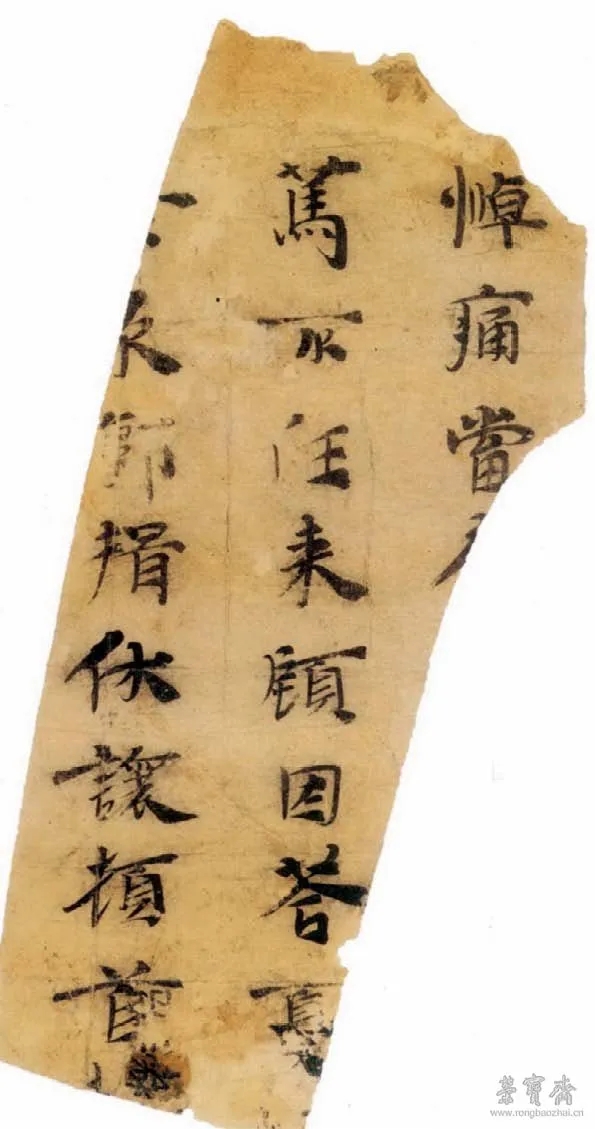 悼痛當
篤不任來顧因答
節揖伏讓頓首
榮寶齋
www.rongbaozhai.cn